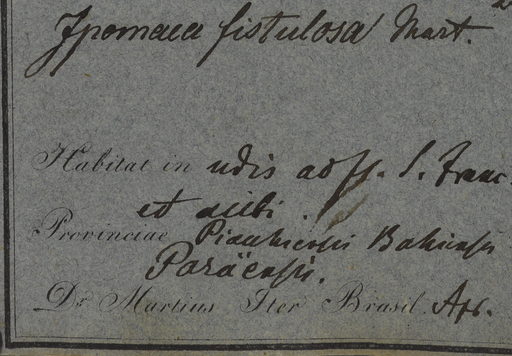 Ipomaea fistulosa Mart.
Habitat in udis ad fl. S. Franc.
et alibi.
Provinciae Piauhiensis Bahiensis
Paraënsis.
Dr. Martius Iter Brasil. Apr.